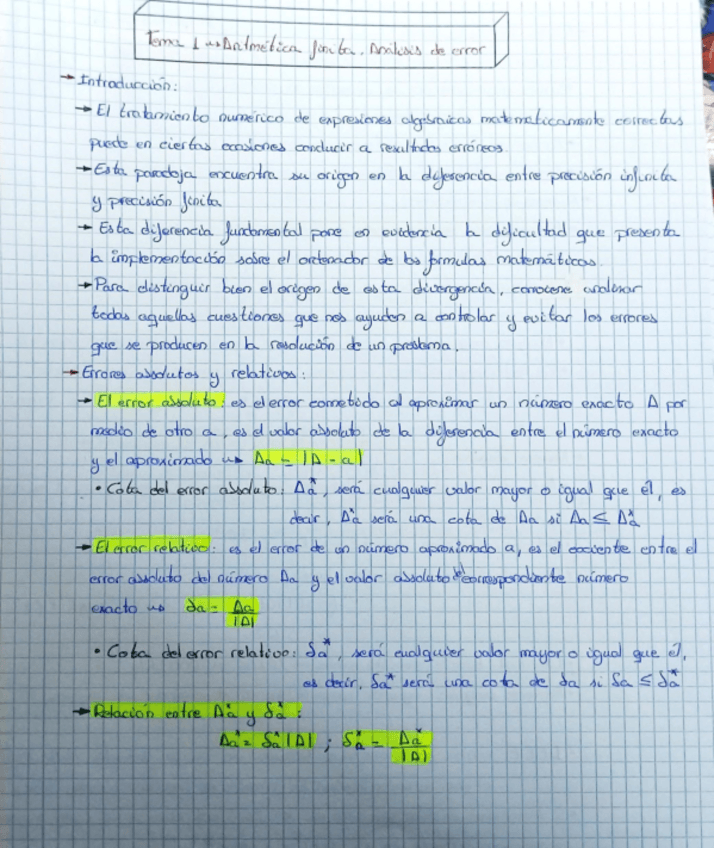 Tema 1 ⇝ Aritmética finita. Análisis de error
→ Introducción:
→ El tratamiento numérico de expresiones algebraicas matemáticamente correctas
puede en ciertas ocasiones conducir a resultados erróneos.
→ Esta paradoja encuentra su origen en la diferencia entre precisión infinita
y precisión finita
→ Esta diferencia fundamental pone en evidencia la dificultad que presenta
la implementación sobre el ordenador de las fórmulas matemáticas.
→ Para distinguir bien el origen de esta divergencia, conviene analizar
todas aquellas cuestiones que nos ayuden a controlar y evitar los errores
que se producen en la resolución de un problema.
→ Errores absolutos y relativos:
→ El error absoluto: es el error cometido al aproximar un número exacto A por
medio de otro a, es el valor absoluto de la diferencia entre el número exacto
y el aproximado ⇝ Δa = |A - a|
• Cota del error absoluto: Δa*, será cualquier valor mayor o igual que él, es
decir, Δa* será una cota de Δa si Δa ≤ Δa*
→ El error relativo: es el error de un número aproximado a, es el cociente entre el
error absoluto del número Δa y el valor absoluto del correspondiente número
exacto ⇝ δa = Δa / |A|
• Cota del error relativo: δa*, será cualquier valor mayor o igual que él,
es decir, δa* será una cota de δa si δa ≤ δa*
→ Relación entre Δa* y δa*:
Δa* = δa* |A| ; δa* = Δa* / |A|